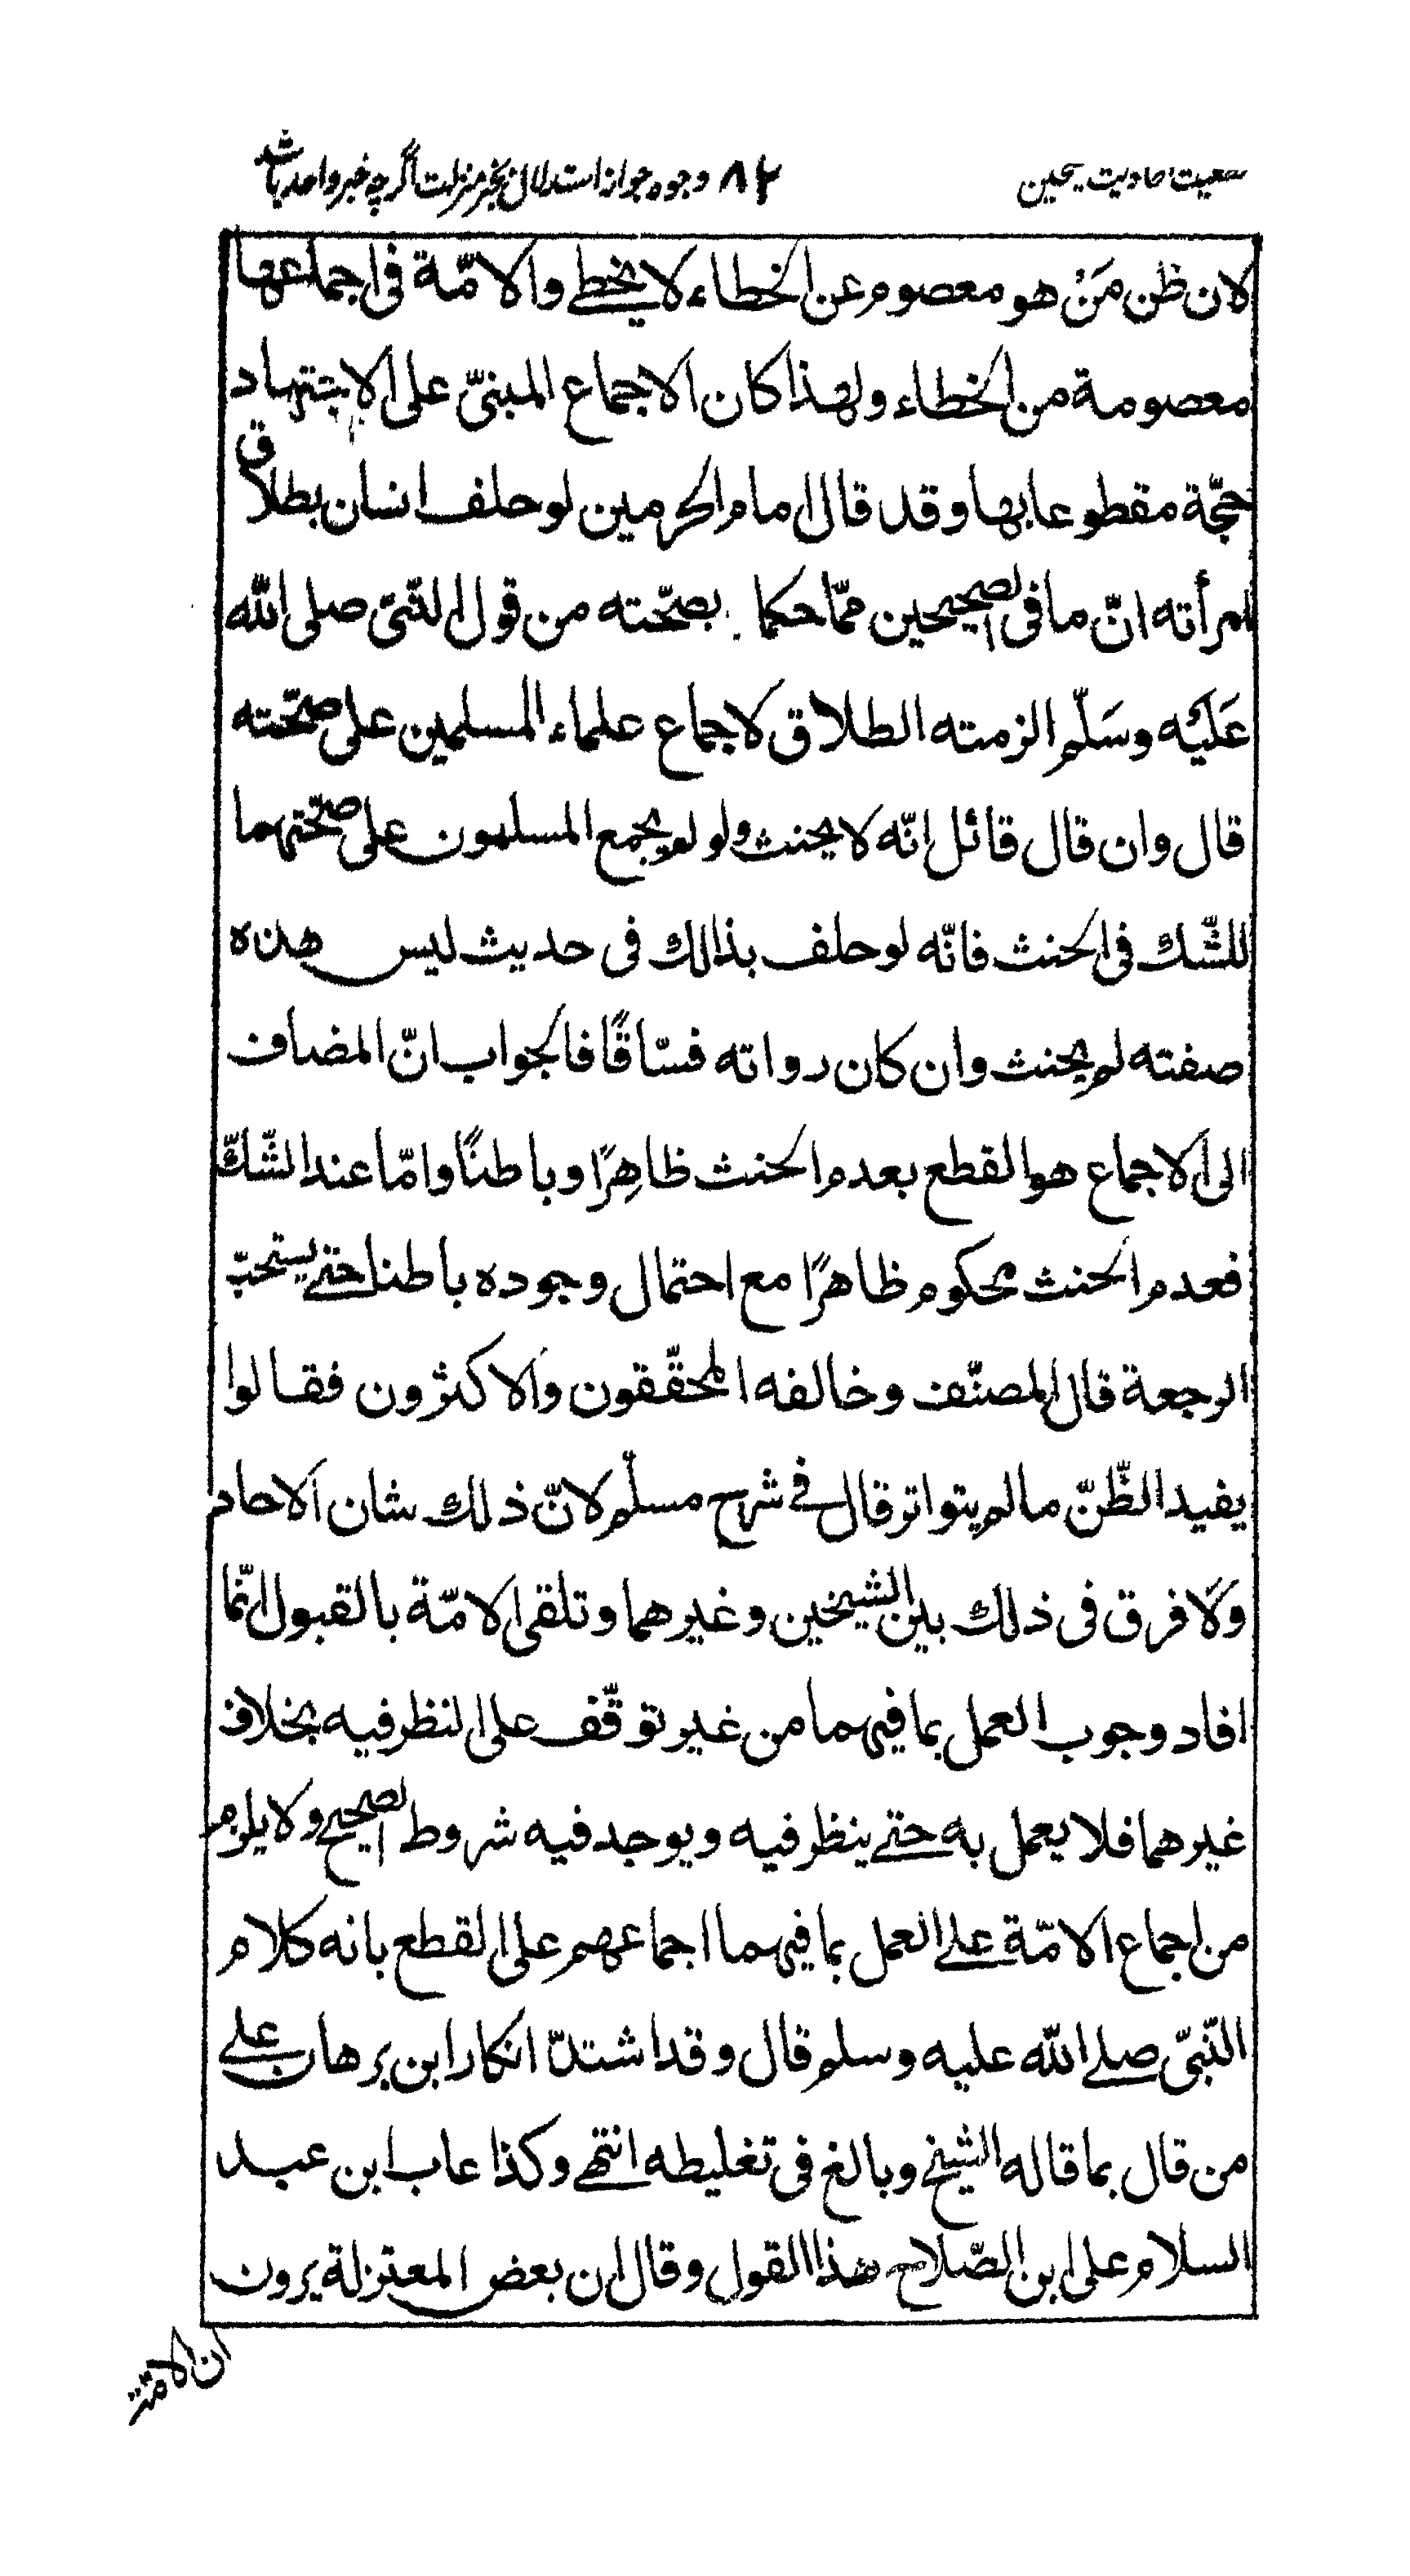 قطعيت احاديث صحيحين ٨٢ وجوه جواز استدلال بخبر منزلت اگرچه خبر واحد باشد
لان ظن مَنْ هو معصوم عن الخطاء لا يخطے والامّة فى اجماعها
معصومة من الخطاء ولهذا كان الاجماع المبنىّ على الاجتهاد
حجّة مقطوعا بها وقد قال امام الحرمين لو حلف انسان بطلاق
امرأته انّ ما فى الصحيحين ممّا حكما بصحّته من قول النّبىّ صلى اللّٰه
عَلَيْه وسَلّم الزمته الطلاق لاجماع علماء المسلمين على صحّته
قال وان قال قائل انّه لا يحنث ولو لم يجمع المسلمون على صحّتهما
للشّك فى الحنث فانّه لو حلف بذالك فى حديث ليس هذه
صفته لم يحنث وان كان رواته فسّاقًا فالجواب انّ المضاف
الى الاجماع هو القطع بعدم الحنث ظاهِرًا وباطنًا وامّا عند الشّكّ
فعدم الحنث محكوم ظاهرًا مع احتمال وجوده باطنا حتےٰ يستحبّ
الرجعة قال المصنّف وخالفه المحقّقون والاكثرون فقالوا
يفيد الظّنّ ما لم يتواتر قال فے شرح مسلّم لانّ ذلك شان الاحاد
ولا فرق فى ذلك بين الشيخين وغيرهما وتلقى الامّة بالقبول انّما
افاد وجوب العمل بما فيهما من غير توقّف على النظر فيه بخلاف
غيرهما فلا يعمل به حتےٰ ينظر فيه ويوجد فيه شروط الصحيح ولا يلزم
من اجماع الامّة علے العمل بما فيهما اجماعهم على القطع بانه كلام
النّبىّ صلے اللّٰه عليه وسلم قال وقد اشتدّ انكار ابن برهان علے
من قال بما قاله الشيخ وبالغ فى تغليطه انتهے وكذا عاب ابن عبد
السلام على ابن الصّلاح هذا القول وقال ان بعض المعتزلة يرون
ان الامّة